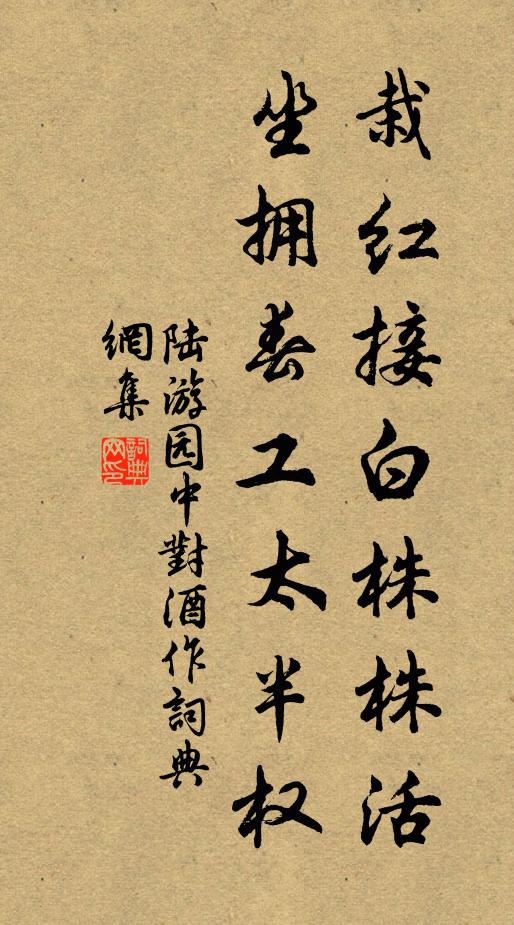 栽红接白株株活
坐拥春工太半权
陆游园中對酒作詞典
網集
詞典
网印